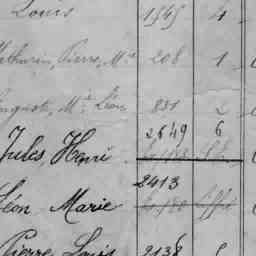 Louis 1545 4
Mathurin, Pierre, M. 208 1
Auguste, M. Léon 831 2
Jules, Henri 2649 6
Léon Marie 2413
Pierre Louis 2138